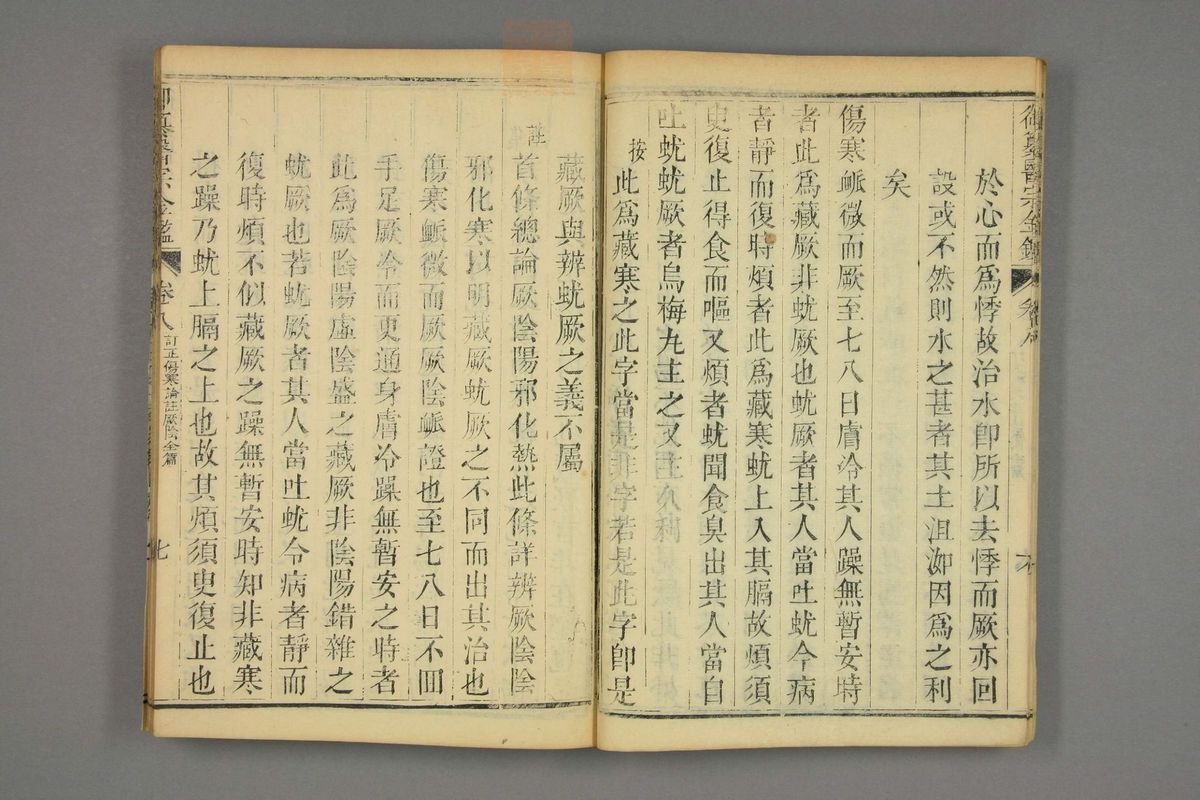 御纂醫宗金鑑
於心而為悸故治水即所以去悸而厥亦回
設或不然則水之甚者其土沮洳因為之利
矣
傷寒脈微而厥至七八日膚冷其人躁無暫安時
者此為藏厥非蚘厥也蚘厥者其人當吐蚘今病
者靜而復時煩者此為藏寒蚘上入其膈故煩須
臾復止得食而嘔又煩者蚘聞食臭出其人當自
吐蚘蚘厥者烏梅丸主之又主久利
按
此為藏寒之此字當是非字若是此字即是
藏厥與辨蚘厥之義不屬
註
首條總論厥陰陽邪化熱此條詳辨厥陰陰
邪化寒以明藏厥蚘厥之不同而出其治也
傷寒脈微而厥厥陰脈證也至七八日不回
手足厥冷而更通身膚冷躁無暫安之時者
此為厥陰陽虛陰盛之藏厥非陰陽錯雜之
蚘厥也若蚘厥者其人當吐蚘今病者靜而
復時煩不似藏厥之躁無暫安時知非藏寒
之躁乃蚘上膈之上也故其煩須臾復止也
卷八 訂正傷寒論註厥陰全篇
七